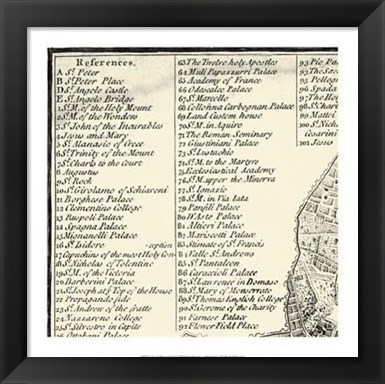 References.
A St. Peter
B St. Peter Place
D St. Angelo Castle
E St. Angelo Bridge
1 St. M. of the Holy Mount
2 St. M. of the Wonders
3 St. John of the Incurables
4 Jesus and Mary
5 St. Atanasio of Grece
6 St. Trinity of the Mount
7 St. Charls to the Court
8 Augustus
9 St. Rock
10 St. Girolamo of Schiavoni
11 Borghese Palace
12 Clementino College
13 Ruspoli Palace
14 Spagna Palace
15 Mignanelli Palace
16 St. Isidore -ception
17 Capuchins of the most Holy Con
18 St. Nicholas of Tolentine
19 St. M. of the Victoria
20 Barberini Palace
21 St. Joseph at ye Top of the House
22 Propaganda side
23 St. Andrew of the fratte
24 Nazareno College
25 St. Silvestro in Capite
Palace
63 The Twelve holy Apostles
64 Muti Papazzurri Palace
65 Academy of France
66 Odescalco Palace
67 St. Marcello
68 Collonna Carbognan Palace
69 Land Custom house
70 St. M. in Aquiro
71 The Roman Seminary
72 Giustiniani Palace
73 St. Eustachio
74 St. M. to the Martyrs
75 Ecclesiastical Academy
76 St. M. upper the Minerva
77 St. Ignazio
78 St. M. in Via lata
79 Panfili Palace
80 D'Aste Palace
81 Altieri Palace
82 Mariscotti Palace
83 Stimate of St. Francis
84 Valle St. Andrens
85 St. Pantaleon
86 Caraccioli Palace
87 St. Lawrence in Domaso
88 St. Mary of Monserrate
89 St. Thomas English College
90 St. Gerome of the Charity
91 Farnese Palace
92 Flower Field Place
93 Pio Pa
94 The Sac
95 Pellegr
96 Spada
97 The
98 St. Ch
99 Mattei
100 St. Nich
Cesarini
101 Jesus